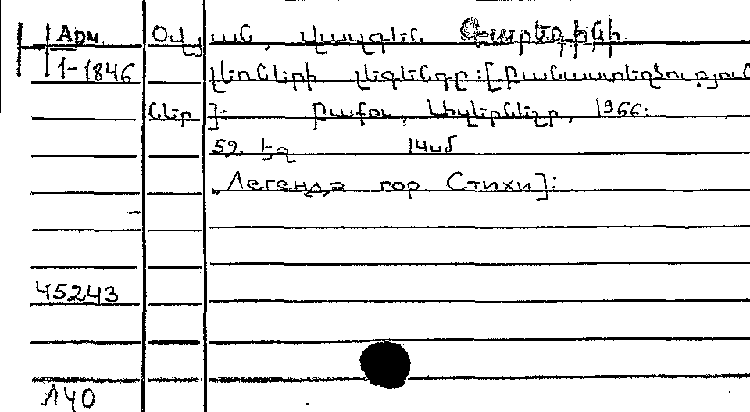 Арм. Օվյան, Վազգեն Գարեգինի
1-1846 Լեռների լեգենդը: [Բանաստեղծություն
ներ]: Բաքու, Ազերնեշր, 1966:
52 էջ 14սմ
Легенда гор Стихи]:
45243
Л40